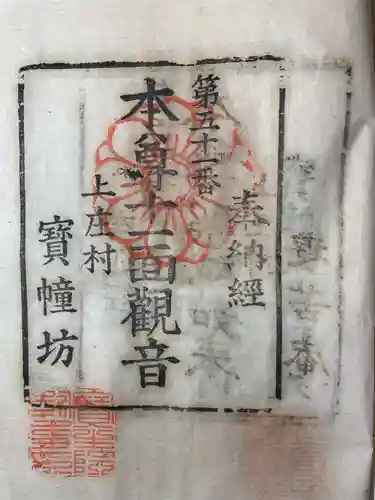 奉納經
第五十一番
本尊十一面觀音
上庄村
寶幢坊